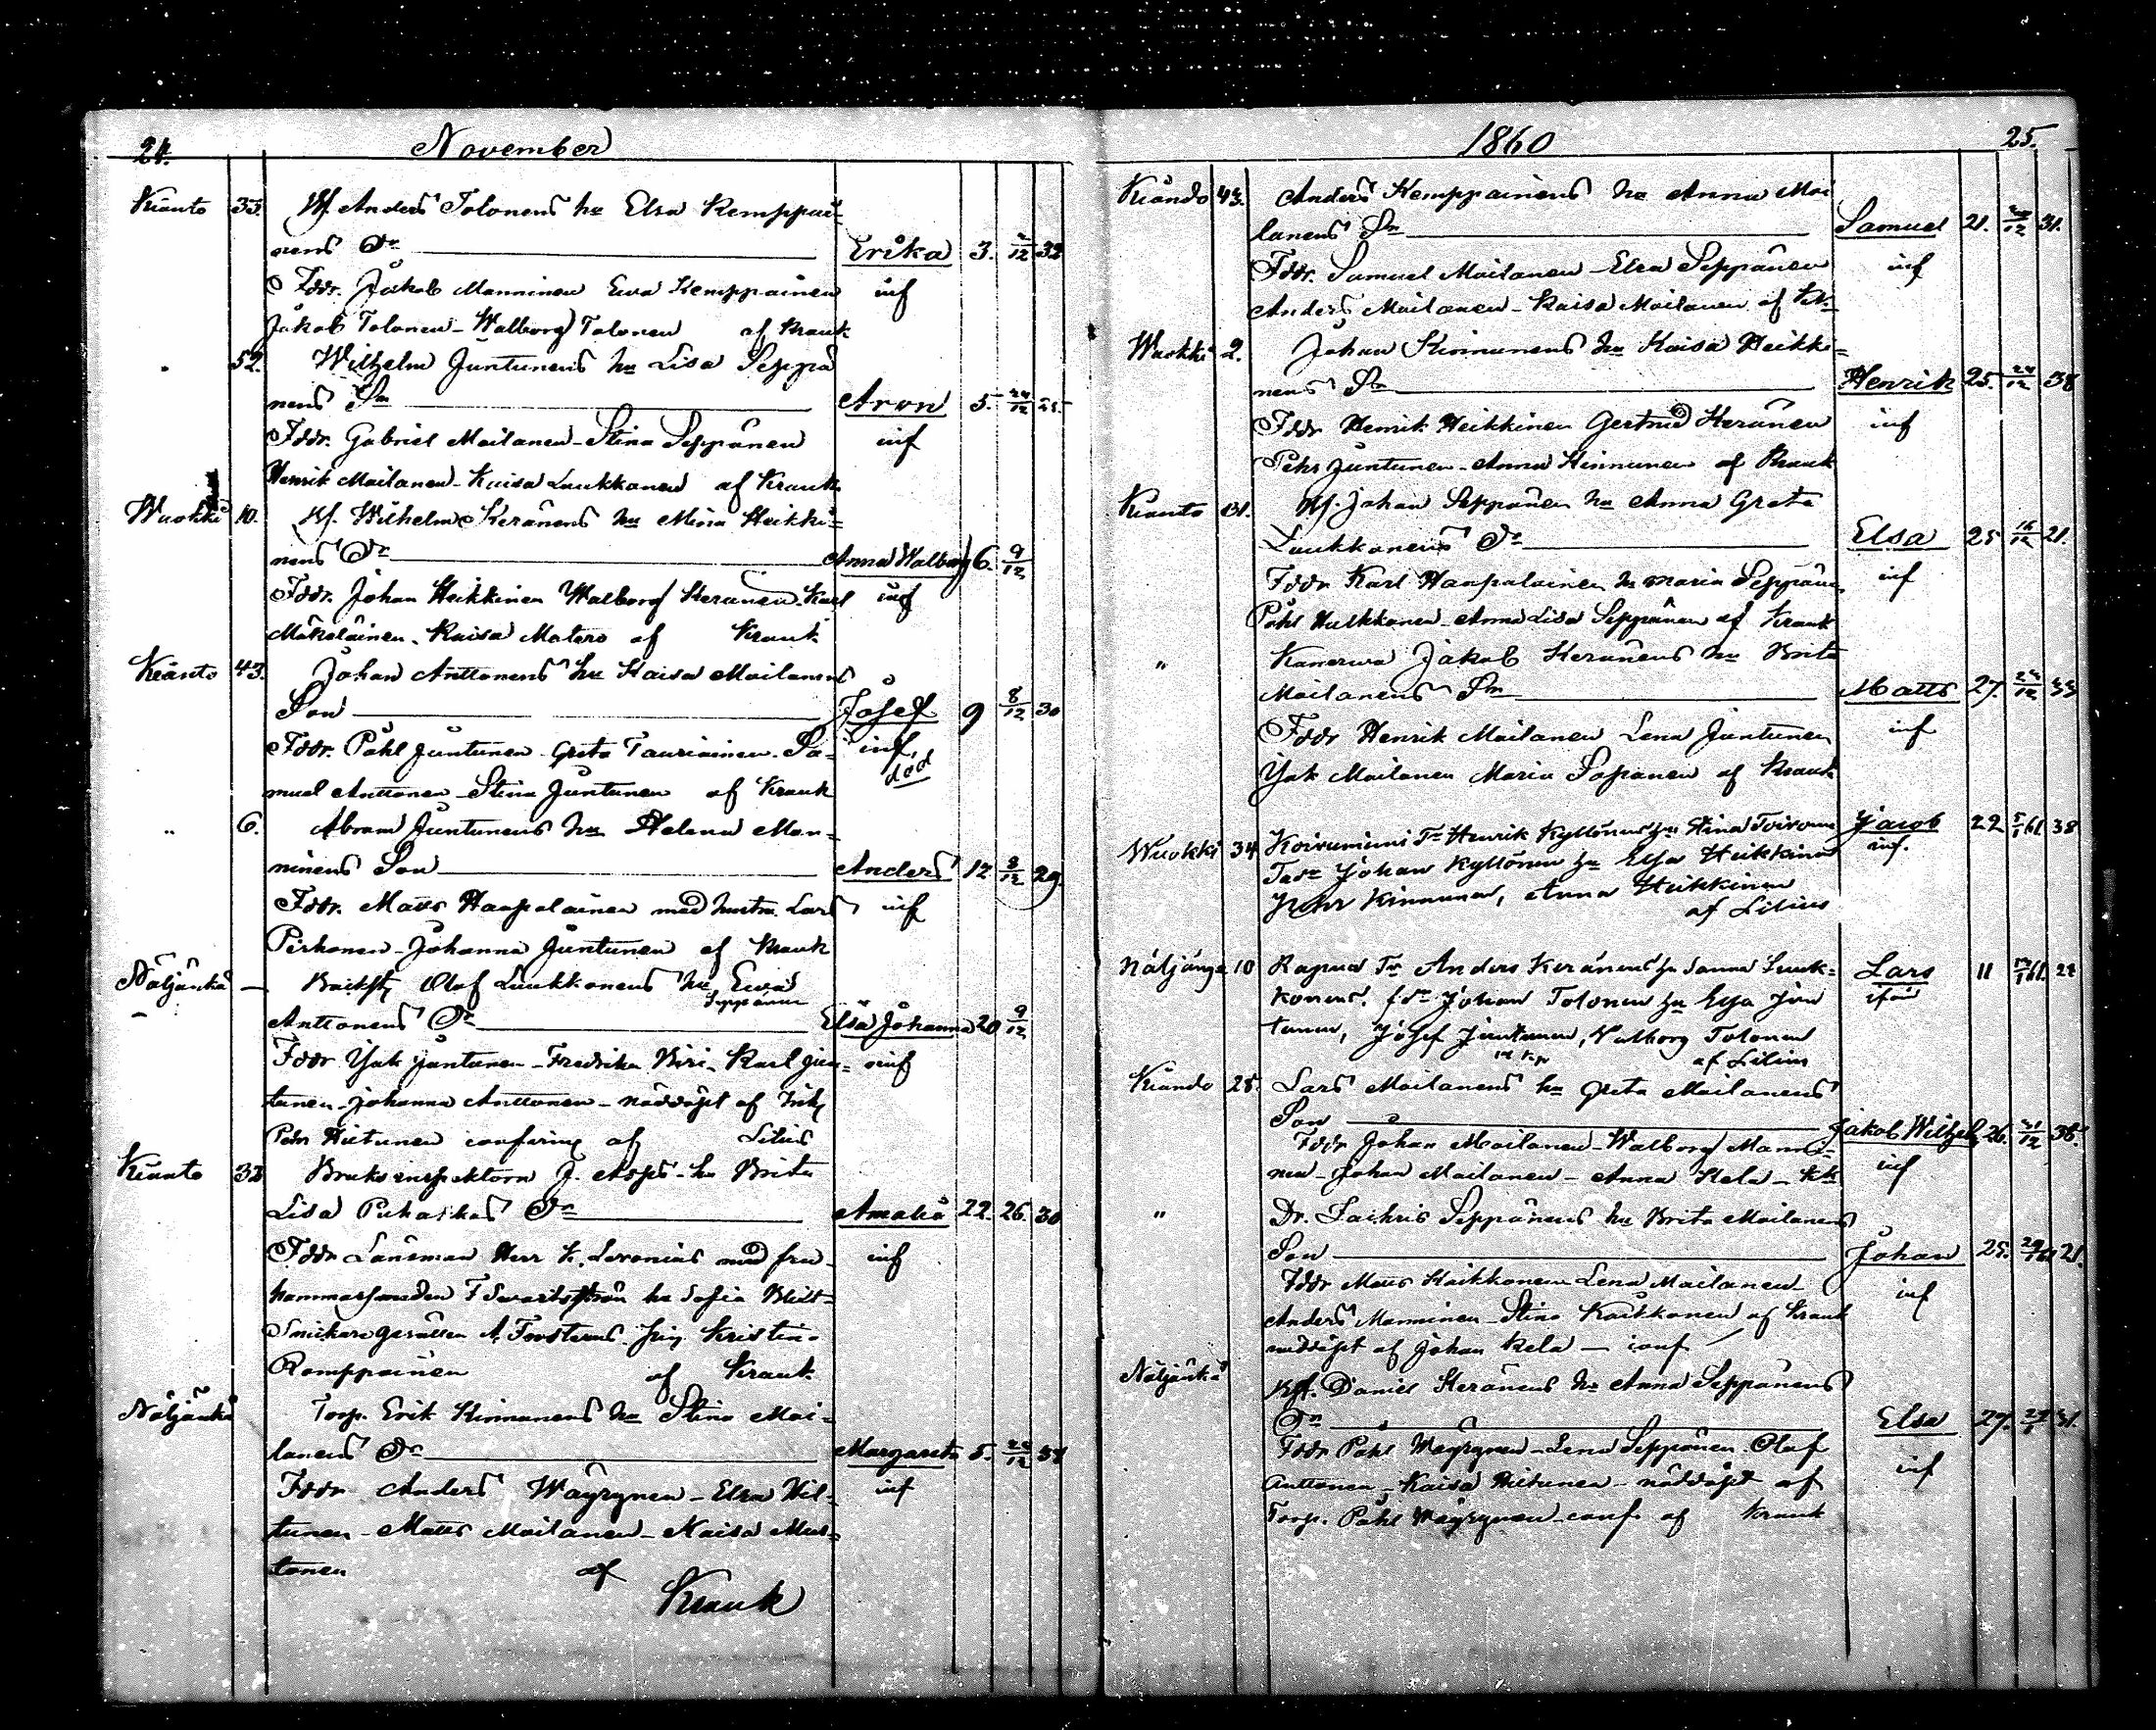 24. November
Kianto 33. Anders Tolonens hu Elsa Kemppai-
nens Dr Erika 3. 2/12 32
Fddr. Jakob Manninen Ewa Kemppainen inf
Jakob Tolonen - Walborg Tolonen af Krank
" 52. Wilhelm Juntunens hu Lisa Seppä
nens Sn Aron 5. 24/12 25
Fddr. Gabriel Moilanen - Stina Seppänen inf
Henrik Moilanen - Kaisa Luukkonen af Krank
Wuokki 10. Wilhelm Keränens hu Mina Heikki=
nens Dr Anna Walborg 6. 9/12
Fddr. Johan Heikkinen Walborg Keränen. Karl inf
Mäkeläinen. Kaisa Matero af Krank
Kianto 43. Johan Anttonens hu Kaisa Moilanens
Son Josef 9 8/12 30
Fddr. Påhl Juntunen - Greta Tauriainen. Sa- inf
död
muel Anttonen - Stina Juntunen af Krank
" 6. Abram Juntunens hu Helena Man-
ninens Son Anders 12 2/12 29.
Fddr. Matts Haapalainen med hustru. Lars inf
Pirhonen - Johanna Juntunen af Krank
Näljänkä — Olof Luukkonens hu Ewa
Seppänen
Anttonens Dr Elsa Johanna 20 9/12
Fddr Isak Juntunen - Fredrika - Karl Jun= inf
tunen - Johanna Anttonen - nöddöpt af
Pehr Hietunen af Lilius
Kianto 32 Bruksinspektorn J. Asps - hu Brita
Lisa Dr Amalia 22. 26. 30
Fddr Länsman Herr K. med fru inf
hammarsmeden F hu Sofia
Snickaregesällen A. Kristina
Romppainen af Krank
Näljänkä Torp. Erik Kinnunens hu Stina Moi-
lanens Dr Margareta 5. 26/12 37
Fddr Anders Wäyrynen - Elsa Hil- inf
tunen - Matts Moilanen - Kaisa Mus-
tonen af
Krank
1860 25.
Kiando 43. Anders Kemppainens hu Anna Moi
lanens Sn Samuel 21. 26/12 31.
Fddr. Samuel Moilanen - Elsa Seppänen inf
Anders Moilanen - Kaisa Moilanen af
Wuokki 2. Johan Kinnunens hu Kaisa Heikki=
nens Sn Henrik 25. 26/12 38
Fddr Henrik Heikkinen Gertrud Keränen inf
Pehr Juntunen - Anna Kinnunen af Krank
Kianto 31. Johan Seppänen hu Anna Greta
Luukkonens Dr Elsa 25 16/12 21.
Fddr Karl Haapalainen hu Maria Seppänen inf
Påhl Huikkonen - Anna Lisa Seppänen af Krank
" Kanerva Jakob Keränens hu Brita
Moilanens Sn Matts 27. 26/12 33
Fddr Henrik Moilanen Lena Juntunen inf
Isak Moilanen Maria Sopanen af Krank
Wuokki 34 Koivuniemi Tr Henrik Kyllönens hu Stina Toivonen Jacob 22 5/1 61. 38
Johan Kyllönen hu Elsa Heikkinen inf.
Pehr Kinnunen, Anna Heikkinen
af Lilius
Näljänge 10 Rapua Tr Anders Keränens hu Sanna Luuk- Lars 11 61. 22
konens. Johan Tolonen hu Elsa Jun
tunen, Josef Juntunen, Walborg Tolonen
af Lilius
Kiando 25. Lars Moilanens hu Greta Moilanens
Son Jakob Wilhelm 26. 31/12 36.
Fddr Johan Moilanen - Walborg Manni- inf
nen - Johan Moilanen - Anna Kela -
" Dr. Zachris Seppänens hu Brita Moilanens
Son Johan 25. 21.
Fddr Matts Kaikkonen Lena Moilanen - inf
Anders Manninen - Stina Kaikkonen af Krank
nöddöpt af Johan Kela - conf
Näljänkä Daniel Keränens hu Anna Seppänens
Dr Elsa 27. 31.
Fddr Påhl Wäyrynen - Lena Seppänen. Olof inf
Anttonen - Kaisa Hietunen - nöddöpt af
Torp. Påhl Wäyrynen - conf. af Krank